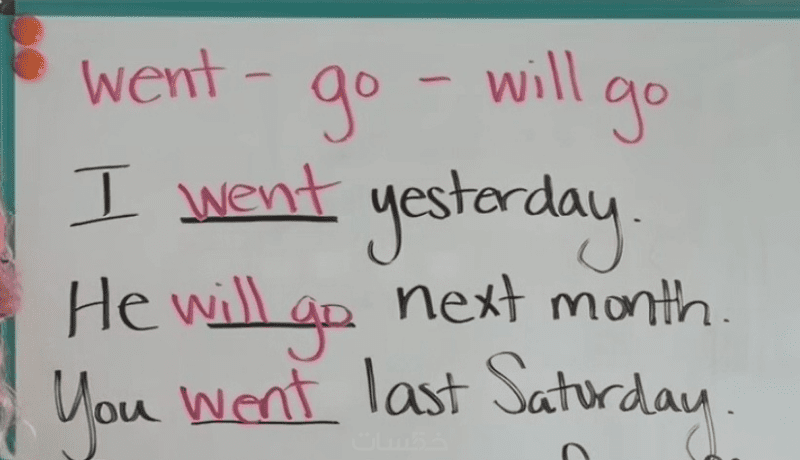 went - go - will go
I went yesterday.
He will go next month.
You went last Saturday.
خمسات